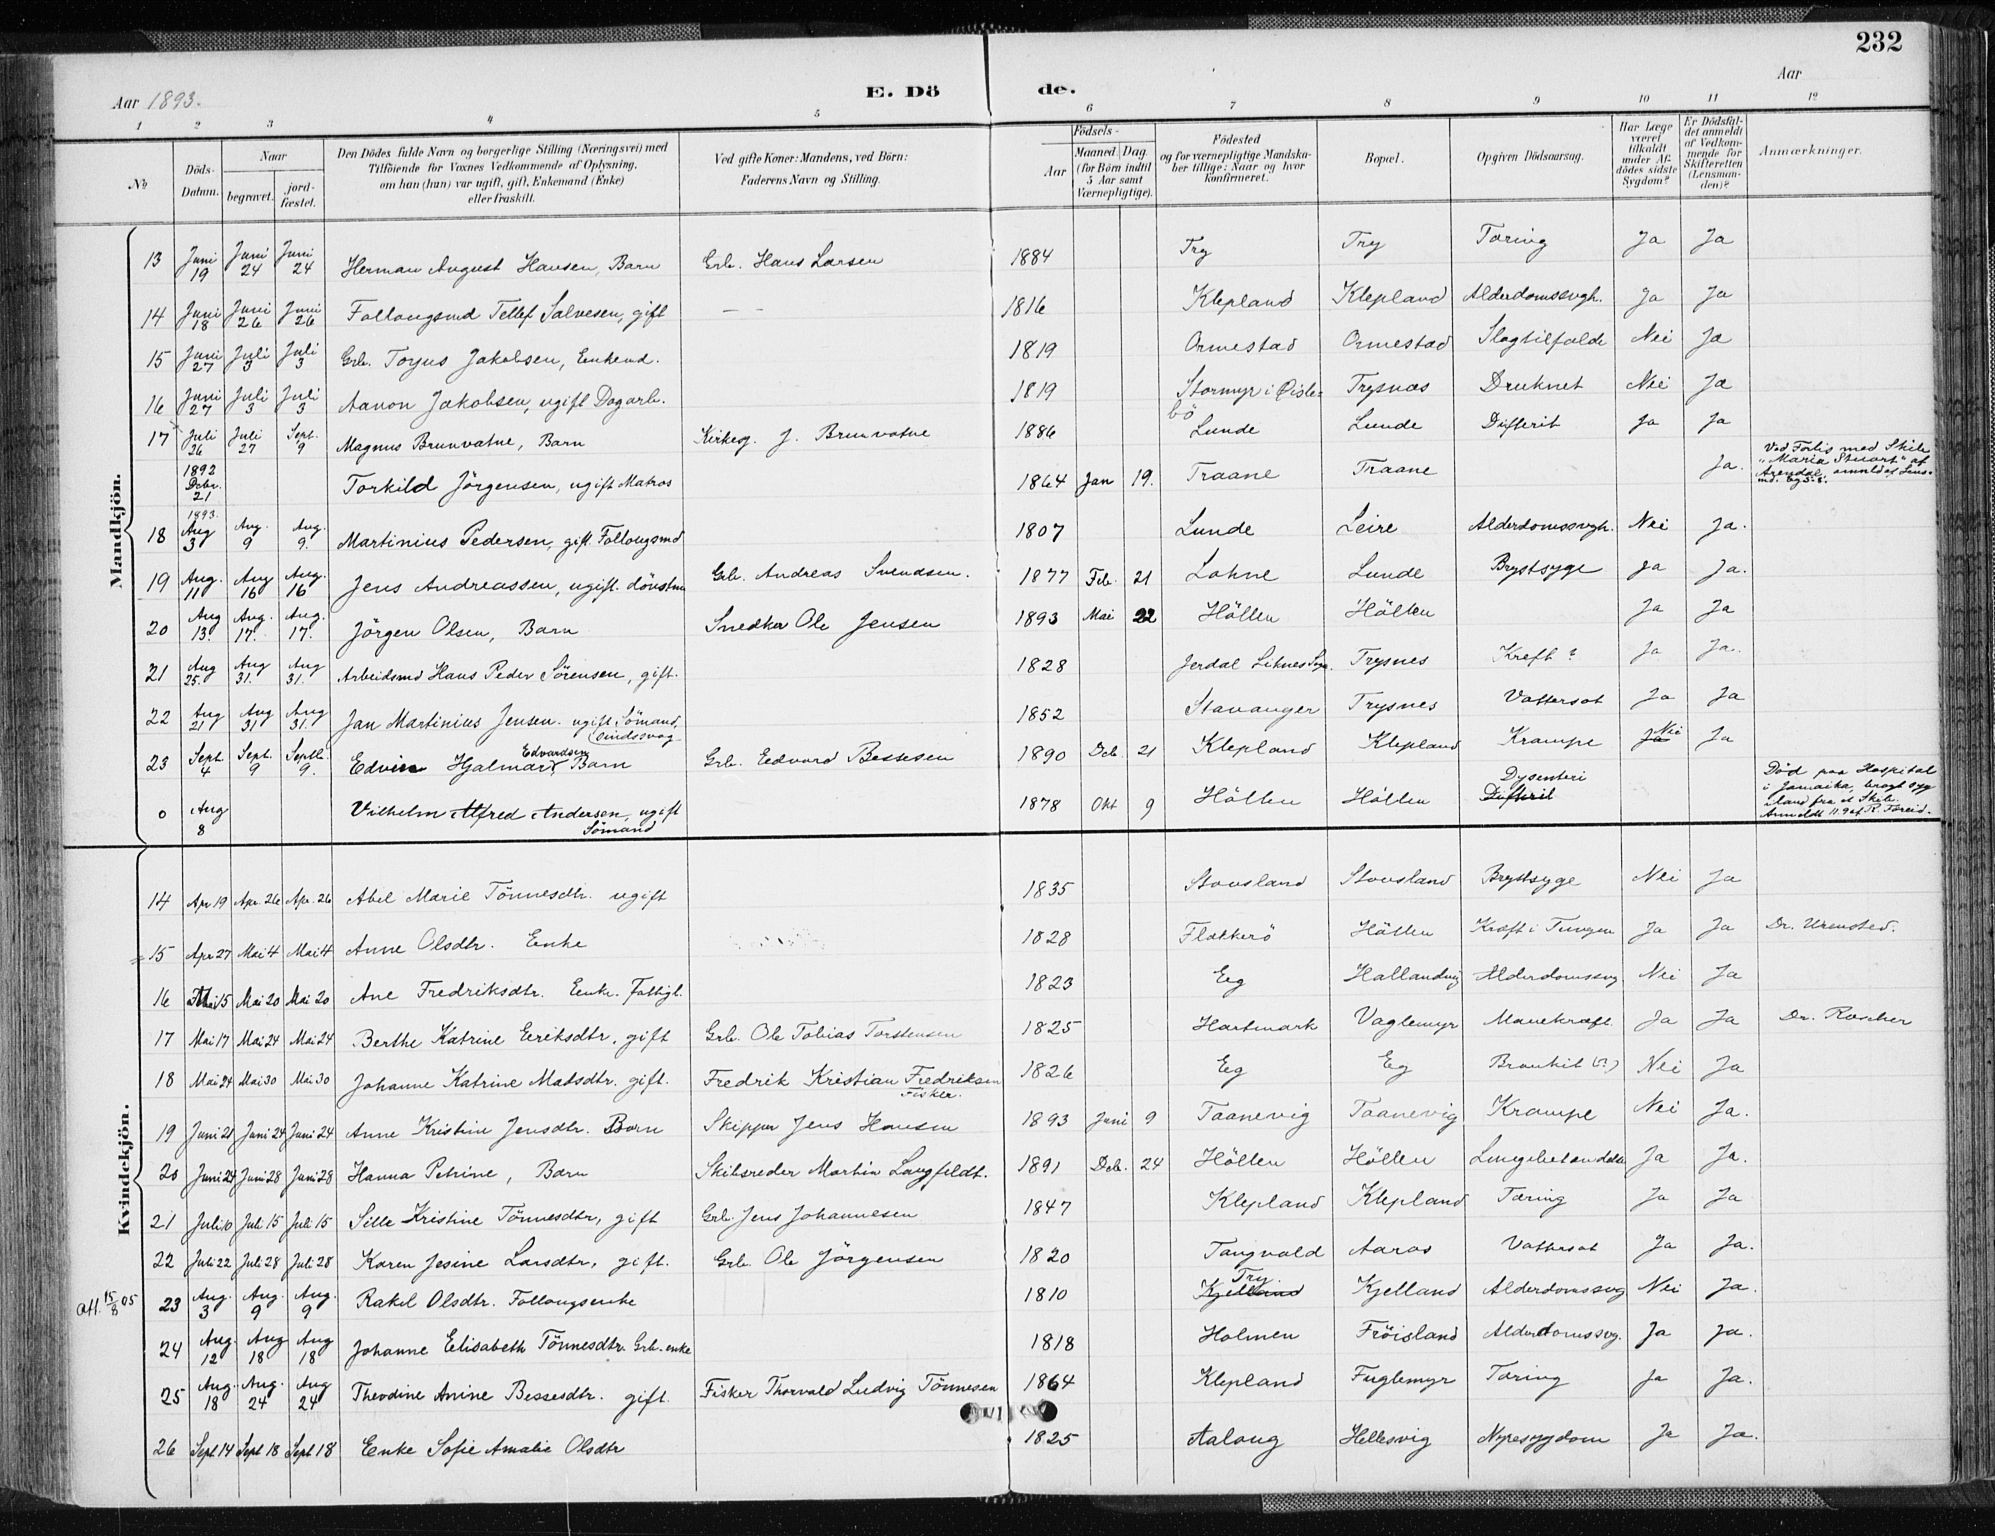 232
Aar 1893.
E. Dö de.
Aar
1 2 3 4 5 6 7 8 9 10 11 12
No
Döds-Datum.
Naar
begravet.
jord-fæstet.
Den Dödes fulde Navn og borgerlige Stilling (Næringsvei) med
Tilföiende for Voxnes Vedkommende af Oplysning,
om han (hun) var ugift, gift, Enkemand (Enke)
eller fraskilt.
Ved gifte Koner: Mandens, ved Börn:
Faderens Navn og Stilling.
Födsels-
Aar
Maaned. Dag.
(for Börn indtil
5 Aar samt
Værnepligtige).
Födested
og for værnepligtige Mandska-
ber tillige: Naar og hvor
konfirmeret.
Bopæl.
Opgiven Dödsaarsag.
Har Læge
været
tilkaldt
under Af-
dödes sidste
Sygdom?
Er Dödsfal-
det anmeldt
af Vedkom-
mende for
Skifteretten
(Lensman-
den)?
Anmærkninger.
Mandkjön.
13 Juni 19 Juni 24 Juni 24 Herman August Hansen, Barn Grb. Hans Larsen 1884 Try Try Tæring Ja Ja
14 Juni 18 Juni 26 Juni 26 Follaugsmd Tellef Salvesen, gift — — 1816 Klepland Klepland Alderdomssvgh. Ja Ja
15 Juni 27 Juli 3 Juli 3 Grb. Tojus Jakobsen, Enkemd. 1819 Ormestad Ormestad Slagtilfælde Nei Ja
16 Juni 27 Juli 3 Juli 3 Aanon Jakobsen, ugift Dagarb. 1819 Stormyr i Øislebö Trysnæs Druknet Nei Ja
17 Juli 26 Juli 27 Sept. 9 Magnus Brunvatne, Barn Kirkesg. J. Brunvatne 1886 Lunde Lunde Difterit Ja Ja
1892 Debr. 21 Torkild Jörgensen, ugift Matros 1864 Jan 19. Traane Traane Ja. Ved Forlis med Skib "Maria Stuart" af Arendal, anmeldt
1893.
18 Aug 3 Aug. 9 Aug. 9. Martinius Pedersen, gift. Follaugsmd 1807 Lunde Leire Alderdomssvgh. Nei Ja.
19 Aug. 11 Aug 16 Aug. 16 Jens Andreassen, ugift. Grb. Andreas Svendsen. 1877 Feb. 21 Lohne Lunde Brystsyge Ja Ja.
20 Aug 13. Aug. 17. Aug. 17. Jörgen Olsen, Barn Snedker Ole Jensen 1893 Mai 22 Höllen Höllen Ja Ja
21 Aug 25. Aug 31. Aug 31. Arbeidsmd Hans Peder Sörensen, gift. 1828 Jerdal Trysnes Kreft? Ja Ja.
22 Aug 21 Aug 31 Aug 31. Jan Martinius Jensen. ugift Sömand, sindssvag 1852 Stavanger Trysnes Vattersot Ja Ja
23 Sept. 4 Sept. 9 Septb. 9. Edvin Hjalmar Edvardsen, Barn Grb. Edvard Bessesen 1890 Deb. 21 Klepland Klepland Krampe Ja Nei Ja
0 Aug 8 Vilhelm Alfred Andersen, ugift Sömand 1878 Okt 9 Höllen Höllen Dysenteri Difterit Död paa Hospital i Jamaika, bragt syg iland fra et Skib. Anmeldt 11.9 af R. Toreid.
Kvindekjön.
14 Apr 19 Apr. 26 Apr. 26 Abel Marie Tönnesdtr. ugift 1835 Stousland Stousland Brystsyge Nei Ja
15 Apr 27 Mai 4 Mai 4 Anne Olsdtr. Enke 1828 Flækkerö Höllen Kræft i Tungen Ja Ja Dr. Urensted.
16 Mai 15 Mai 20 Mai 20 Ane Fredriksdtr. Enke. fattigl. 1823 Eg Hallandvig Alderdomssvg Nei Ja
17 Mai 17 Mai 24 Mai 24 Berthe Katrine Eriksdtr. gift Grb. Ole Tobias Torstensen 1825 Hartmark Vaglemyr Mavekræft. Ja Ja Dr. Roscher
18 Mai 24 Mai 30 Mai 30 Johanne Katrine Madsdtr. gift. Fredrik Kristian Fredriksen Fisker. 1826 Eg Eg Bronkit (?) Nei Ja
19 Juni 21 Juni 24 Juni 24 Anne Kristine Jensdtr. Barn Skipper Jens Hansen 1893 Juni 9 Taanevig Taanevig Krampe Nei Ja.
20 Juni 24 Juni 28 Juni 28 Hanna Petrine, Barn Skibsreder Martin Langfeldt. 1891 Deb. 24 Höllen Höllen Lungebetændelse Ja Ja.
21 Juli 10 Juli 15 Juli 15 Sille Kristine Tönnesdtr, gift Grb. Jens Johannesen 1847 Klepland Klepland Tæring Ja Ja
22 Juli 22 Juli 28 Juli 28 Karen Jesine Larsdtr, gift. Grb. Ole Jörgensen 1820 Tangvald Aaros Vattersot Ja Ja.
Att. 15/8 05 23 Aug. 3 Aug. 9 Aug. 9 Rakel Olsdtr. Follaugsenke 1810 Kjelland Try. Kjelland Alderdomssvg Nei Ja.
24 Aug. 12 Aug 18 Aug 18 Johanne Elisabeth Tönnesdtr. Grb. enke 1818 Holmen Fröisland Alderdomssvg. Ja Ja.
25 Aug. 18 Aug. 24 Aug 24 Theodine Anine Bessesdtr. gift. Fisker Thorvald Ludvig Tönnesen 1864 Klepland Fuglemyr Tæring Ja Ja.
26 Sept 14 Sept 18 Sept 18 Enke Sofie Amalie Olsdtr 1825 Aalong Hellesvig Nyresygdom Ja Ja.